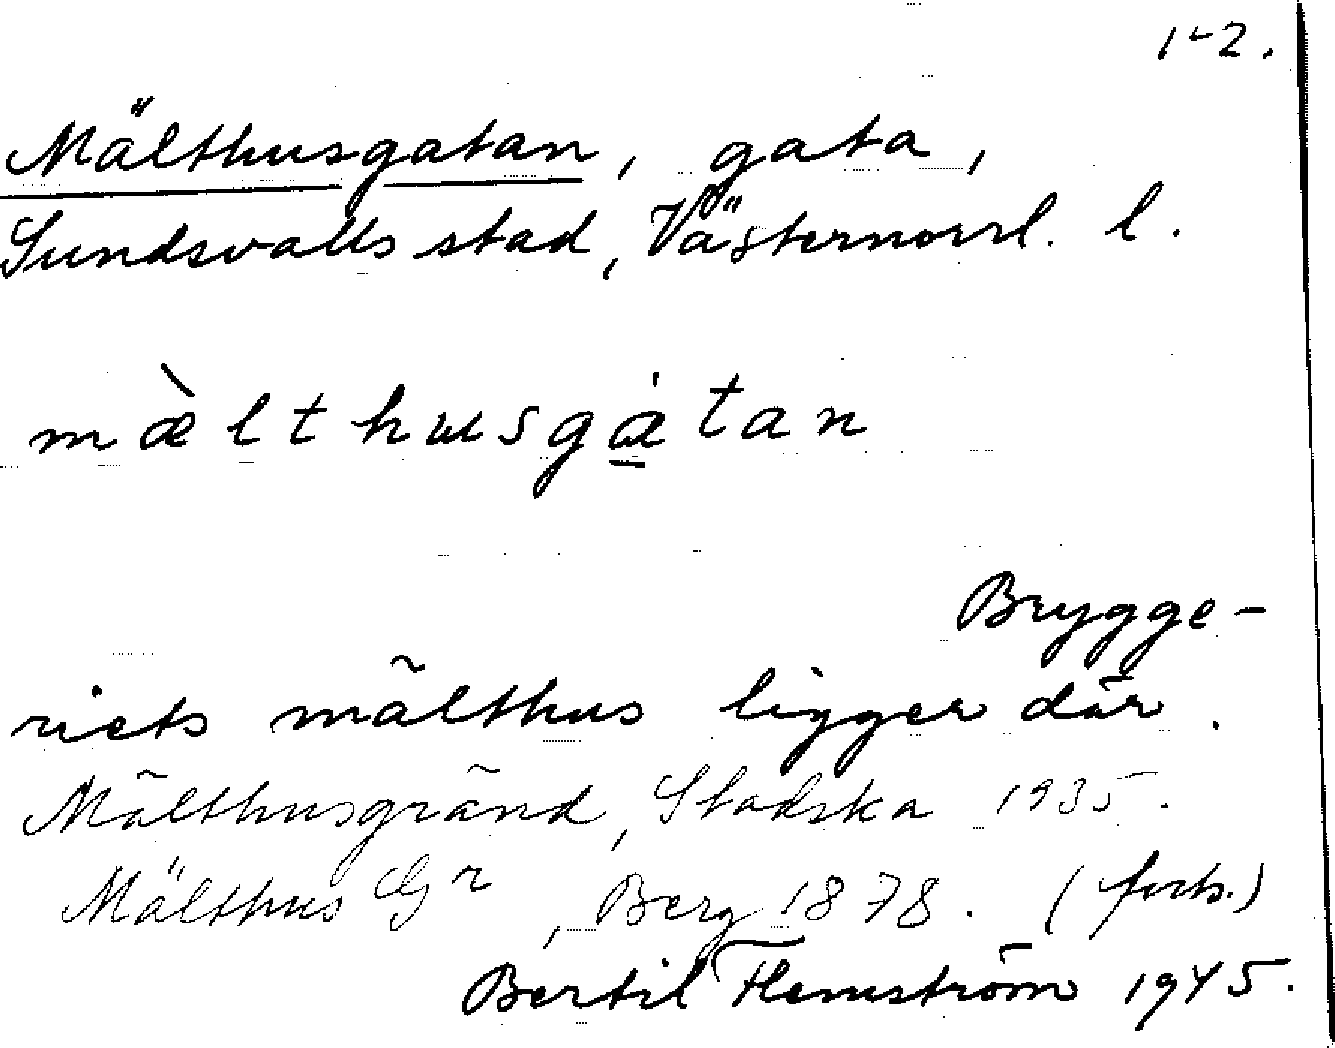 1-2.
Mälthusgatan, gata,
Sundsvalls stad, Västernorrl. l.
mæ̀lthusgàtan
Brygge-
riets mälthus ligger där.
Mälthusgränd, Stadska 1935.
Mälthus Gr, Berg 1878. (forts.)
Bertil Flemström 1945.